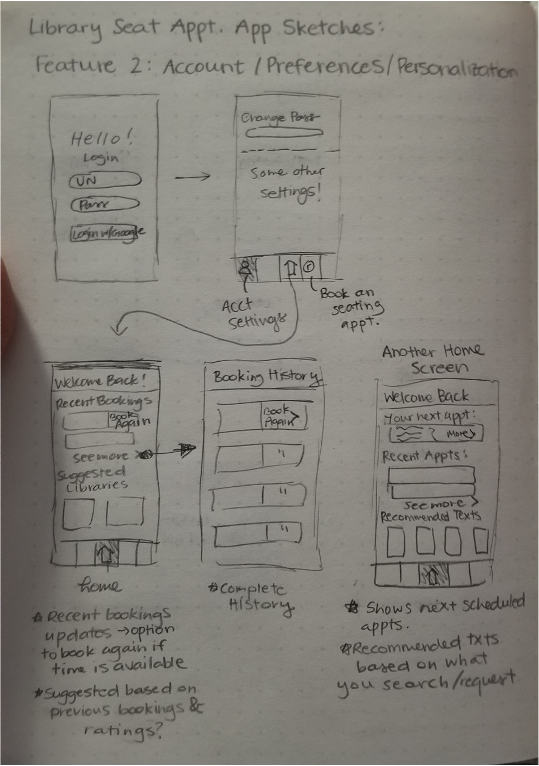 Library Seat Appt. App Sketches:
Feature 2: Account/Preferences/Personalization
Hello!
Login
UN
Pass
Login w/Google
Change Pass
Some other
settings!
Acct
settings
Book an
seating
appt.
Welcome Back!
Recent Bookings
Book
Again
see more >
Suggested
Libraries
home
* Recent bookings
updates → option
to book again if
time is available
* Suggested based on
previous bookings &
ratings?
Booking History
Book
Again >
"
"
"
* Complete
History
Another Home
Screen
Welcome Back
Your next appt:
More >
Recent Appts:
see more >
Recommended Texts
* Shows next scheduled
appts.
* Recommended txts
based on what
you search/request